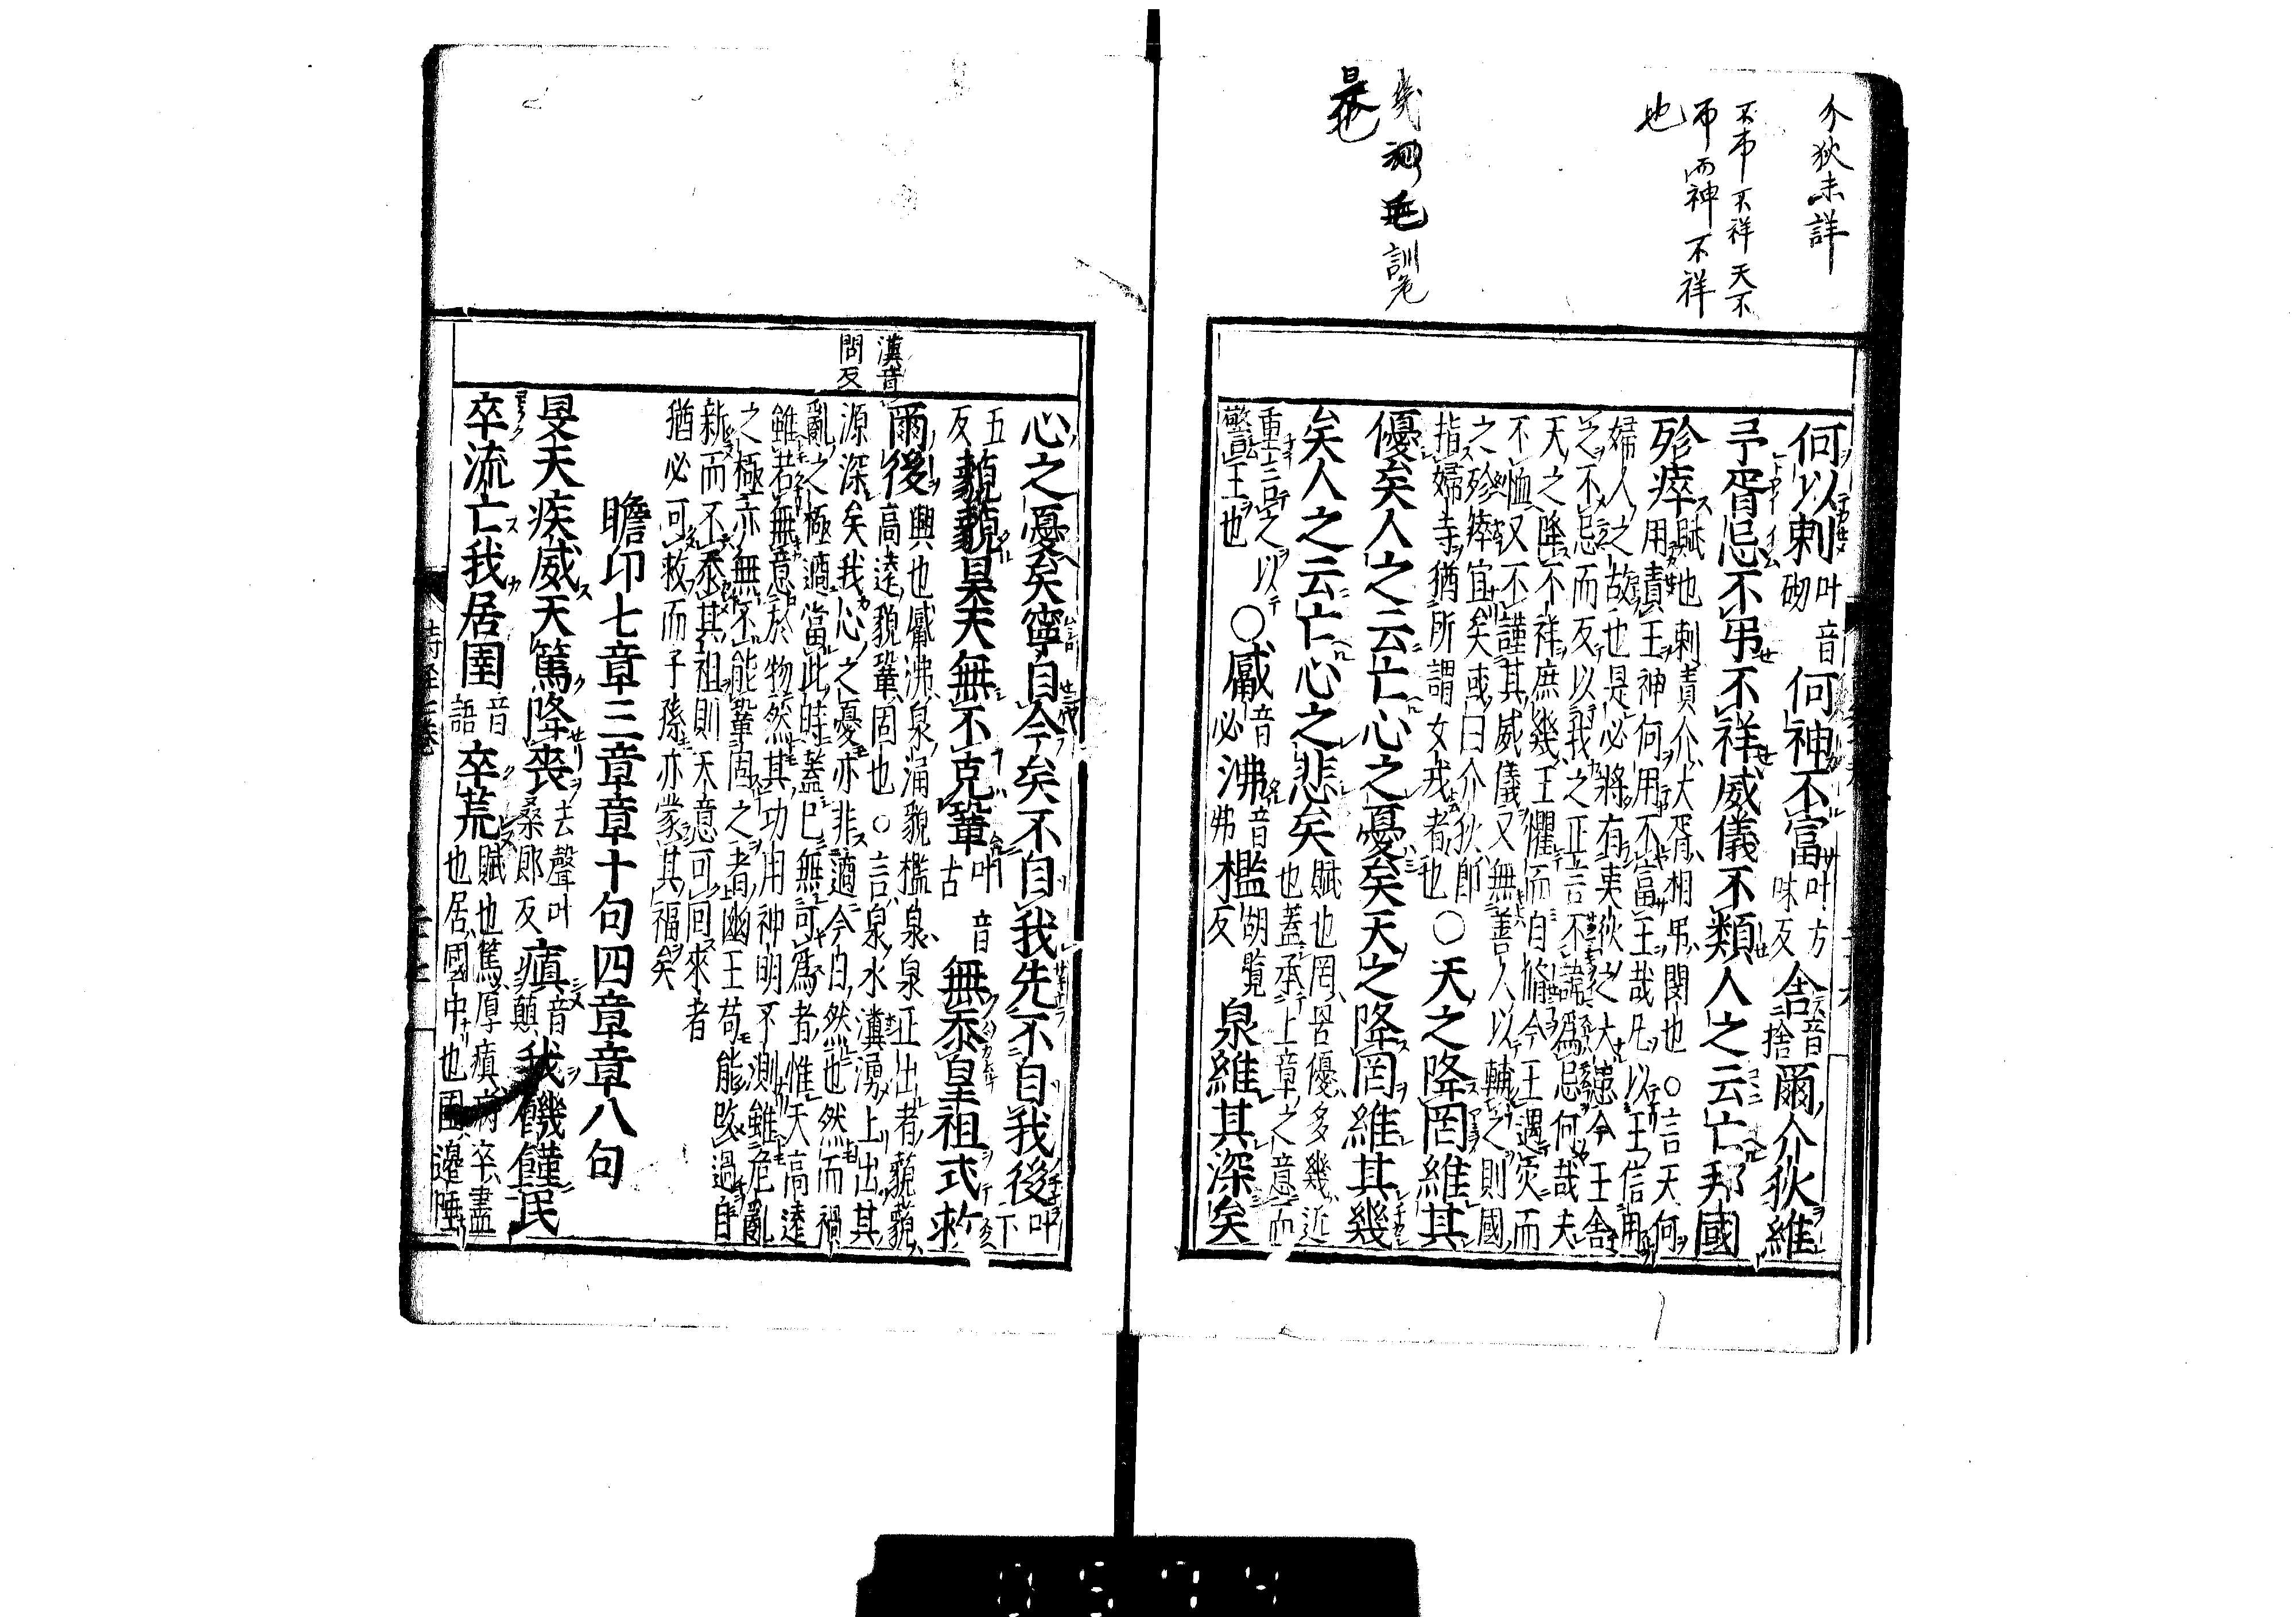 介狄未詳
不弔不祥天不
弔而神不祥
也
訓危
何以刺叶音砌何神不富叶方味反舍音捨爾介狄維
予胥忌不弔不祥威儀不類人之云亡邦國
殄瘁賦也刺責介大胥相弔閔也○言天何
用責王神何用不富王哉凡以王信用
婦人之故也是必將有夷狄之大患今王舍
之不忌而反以我之正言不諱爲忌何哉夫
天之降不祥庶幾王懼而自脩今王遇災而
不恤又不謹其威儀又無善人以輔之則國
之殄瘁宜矣或曰介狄卽
指婦寺猶所謂女戎者也○天之降罔維其
優矣人之云亡心之憂矣天之降罔維其幾
矣人之云亡心之悲矣賦也罔罟優多幾近
也蓋承上章之意而
重言之以
警王也○觱音必沸音弗檻胡覽反泉維其深矣
心之憂矣寧自今矣不自我先不自我後叶下
五反藐藐昊天無不克鞏叶音古無忝皇祖式救
爾後興也觱沸泉涌貌檻泉泉正出者藐藐
高遠貌鞏固也○言泉水瀵湧上出其
源深矣我心之憂亦非適今日然也然而禍
亂之極適當此時蓋已無可爲者惟天高遠
雖若無意於物然其功用神明不測雖危亂
之極亦無不能鞏固之者幽王苟能改過自
新而不忝其祖則天意可回來者
猶必可救而子孫亦蒙其福矣
瀵音
問反
瞻卬七章三章章十句四章章八句
旻天疾威天篤降喪去聲叶桑郎反瘨音顛我饑饉民
卒流亡我居圉音語卒荒賦也篤厚瘨病卒盡
也居國中也圉邊陲